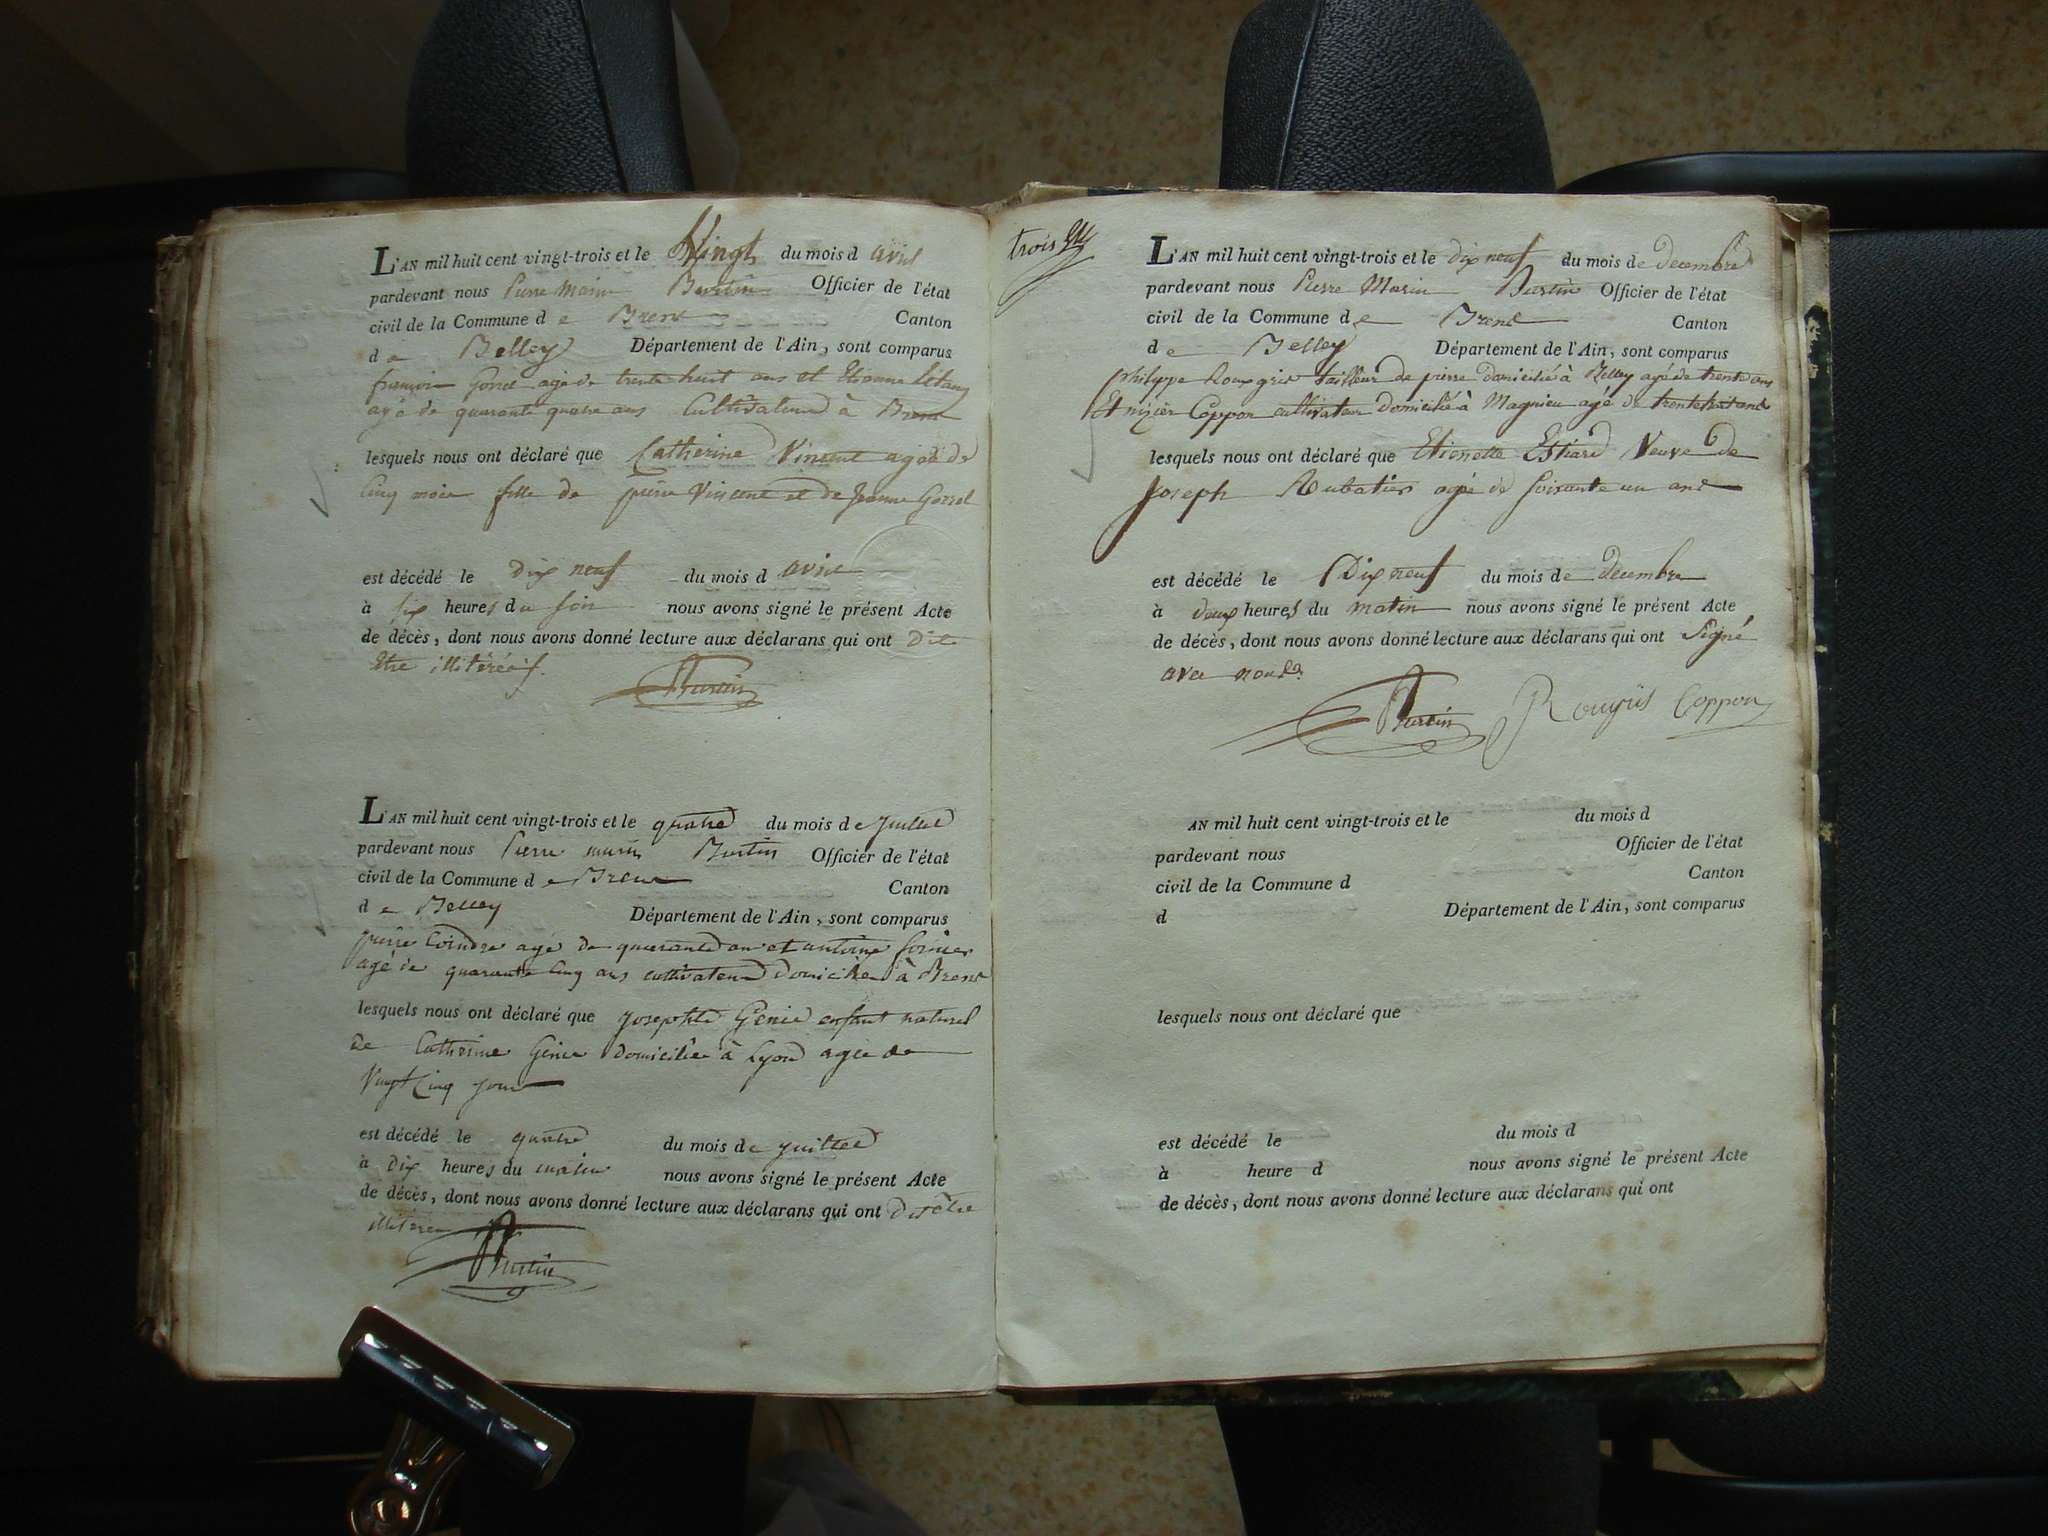 L'AN mil huit cent vingt-trois et le Vingt du mois d avril
pardevant nous Pierre Marin Burtin Officier de l'état
civil de la Commune d e Brens Canton
d e Belley Département de l'Ain, sont comparus
françois Gorrel agé de trente huit ans et Etienne
agé de quarante quatre ans Cultivateurs à Brens
lesquels nous ont déclaré que Catherine Vincent agée de
Cinq mois fille de pierre Vincent et de Jeanne Gorrel
est décédé le dix neuf du mois d avril
à six heures du soir nous avons signé le présent Acte
de décès, dont nous avons donné lecture aux déclarans qui ont dit
Etre illiterés.
Burtin
L'AN mil huit cent vingt-trois et le quatre du mois de juillet
pardevant nous Pierre marin Burtin Officier de l'état
civil de la Commune d e Brens Canton
d e Belley Département de l'Ain, sont comparus
pierre Coindre agé de quarante ans et antoine
agé de quarante Cinq ans cultivateurs domiciliés à Brens
lesquels nous ont déclaré que josephte Genie enfant naturel
de Catherine Genie domiciliée à Lyon agée de
Vingt Cinq jours
est décédé le quatre du mois de juillet
à dix heures du matin nous avons signé le présent Acte
de décès, dont nous avons donné lecture aux déclarans qui ont dit être
illiteres
Burtin
trois
L'AN mil huit cent vingt-trois et le dix neuf du mois de decembre
pardevant nous Pierre Marin Burtin Officier de l'état
civil de la Commune d e Brens Canton
d e Belley Département de l'Ain, sont comparus
philippe Rougris tailleur de pierre domicilié à Belley agé de trente ans
Et nizier Coppon cultivateur domicilié à Magnieu agé de trente huit ans
lesquels nous ont déclaré que Etienette Estiard Veuve de
Joseph Rubatier agée de soixante un ans
est décédé le Dix neuf du mois de decembre
à deux heures du matin nous avons signé le présent Acte
de décès, dont nous avons donné lecture aux déclarans qui ont Signé
avec nous
Burtin Rougris Coppon
AN mil huit cent vingt-trois et le du mois d
pardevant nous Officier de l'état
civil de la Commune d Canton
d Département de l'Ain, sont comparus
lesquels nous ont déclaré que
est décédé le du mois d
à heure d nous avons signé le présent Acte
de décès, dont nous avons donné lecture aux déclarans qui ont